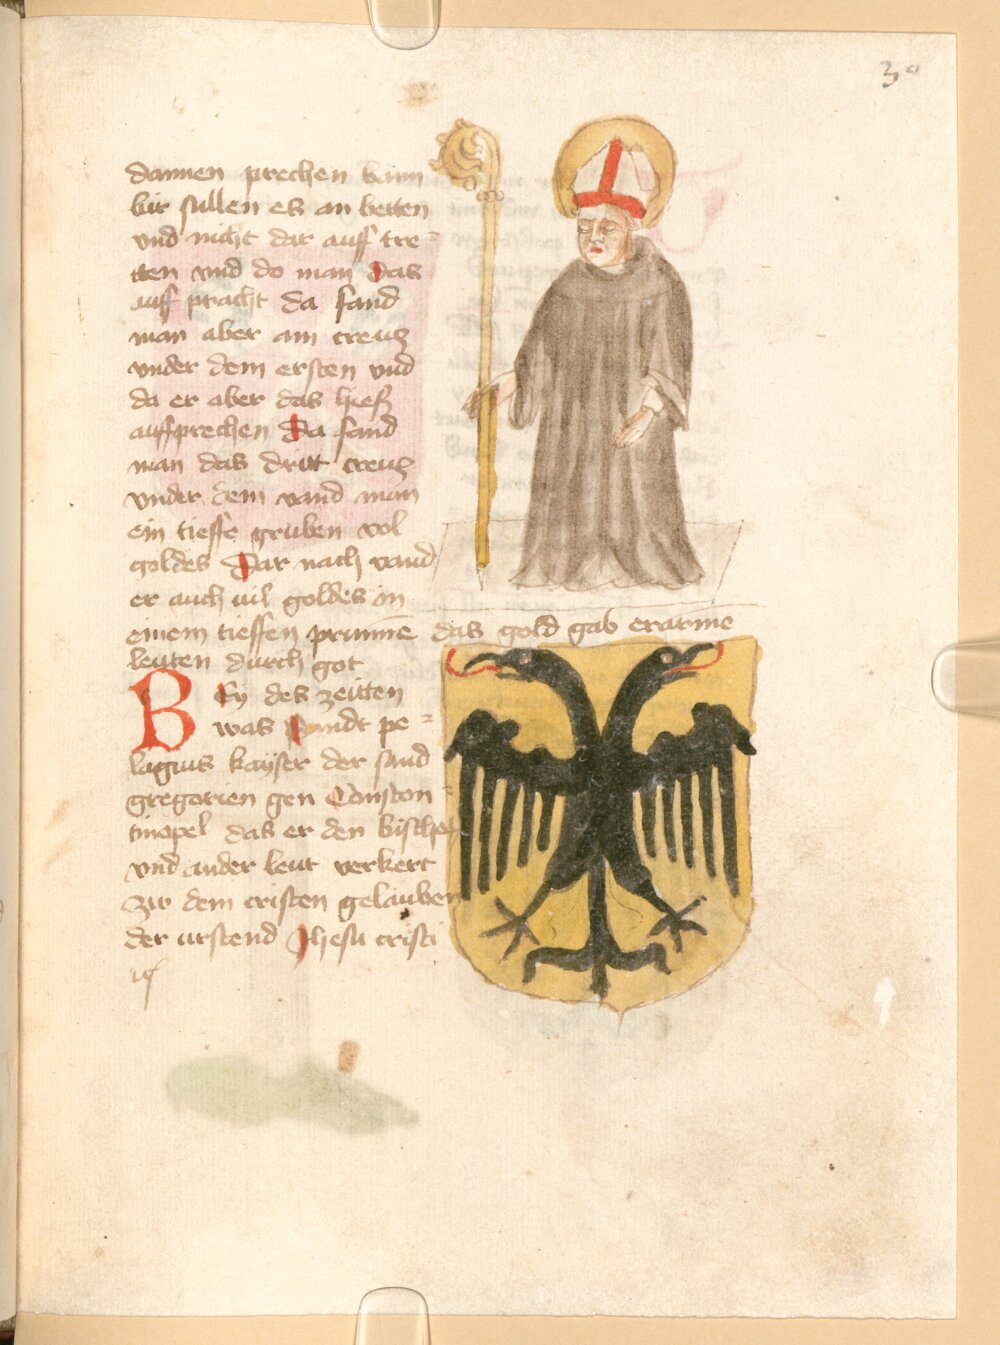 30
dannen prechen kain
bir sullen es an betten
vnd nicht dar auff tre=
tten vnd do man das
auff pracht da fand
man aber ain creucz
vnder dem ersten vnd
da er aber das hiess
auffprechen Da fand
man das dritt creucz
vnder dem vand man
ein tieffe gruben vol
goldes Dar nach vand
er auch uil goldes in
einem tieffen prunnē das gold gab er arme
leuten durch got
BEy des zeitten
was pe=
lagius kayser der sand
gregorien gen Conston=
tinopel das er den bischof
vnd ander leut verkert
zu dem cristen gelauben
der urstend Jhesu cristi